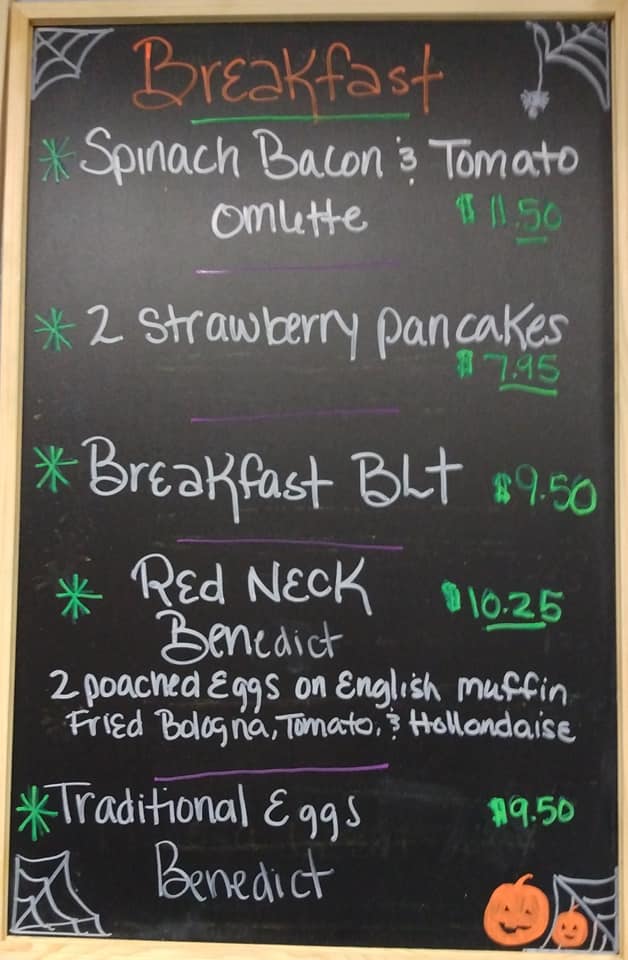 Breakfast
* Spinach Bacon & Tomato
omlette $ 11.50
* 2 Strawberry pancakes
$ 7.95
* Breakfast BLT $9.50
* Red Neck $10.25
Benedict
2 poached Eggs on English muffin
Fried Bologna, Tomato, & Hollondaise
* Traditional Eggs $9.50
Benedict